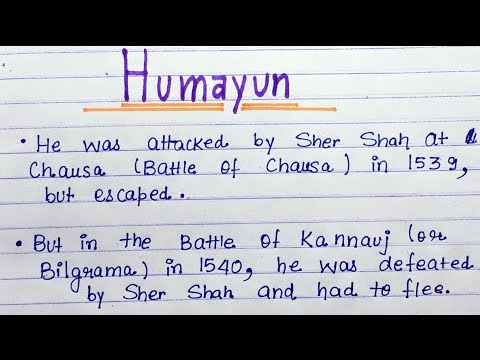 Humayun
• He was attacked by Sher Shah at
Chausa (Battle of Chausa) in 1539,
but escaped.
• But in the Battle of Kannauj (or
Bilgrama) in 1540, he was defeated
by Sher Shah and had to flee.